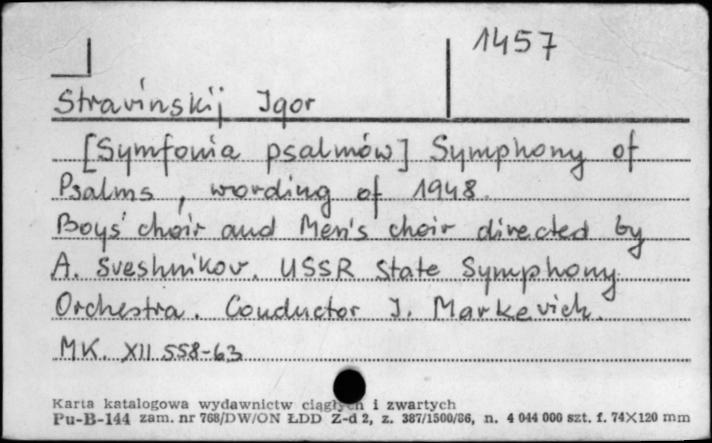 1457
Stravinskij Igor
[Symfonia psalmów] Symphony of
Psalms, wording of 1948.
Boys' choir and Men's choir directed by
A. Sveshnikov. USSR State Symphony
Orchestra. Conductor I. Markevich.
MK. XII 558-63
Karta katalogowa wydawnictw ciągłych i zwartych
Pu-B-144 zam. nr 768/DW/ON ŁDD Z-d 2, z. 387/1500/86, n. 4 044 000 szt. f. 74×120 mm